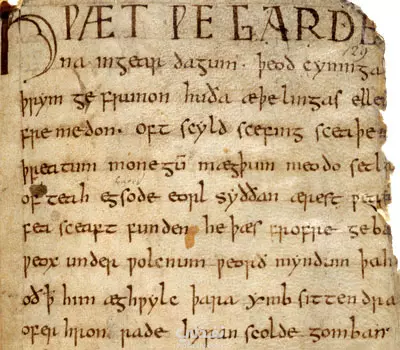 HǷÆT ǷE GARDE
na ingear dagum. þeod cyninga
þrym ge frunon huða æþelingas elle
fre medon. oft scyld scefing sceaþe
þreatum monegū mægþum meodo setla
of teah egsode eorl syððan ærest ƿear
fea sceaft funden he þæs frofre geba
ƿeox under ƿolcnum ƿeorð myndum þah
oð þ him æghƿylc þara ymb sittendra
ofer hron rade hyran scolde gomban